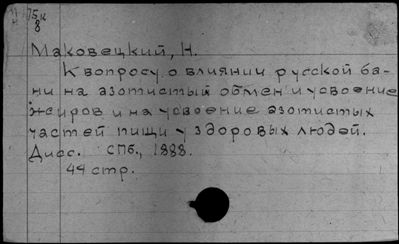 75к
8
Маковецкий, Н.
К вопросу о влиянии русской ба-
ни на азотистый обмен и усвоение
жиров и на усвоение азотистых
частей пищи у здоровых людей.
Дисс. СПб., 1888.
44 стр.